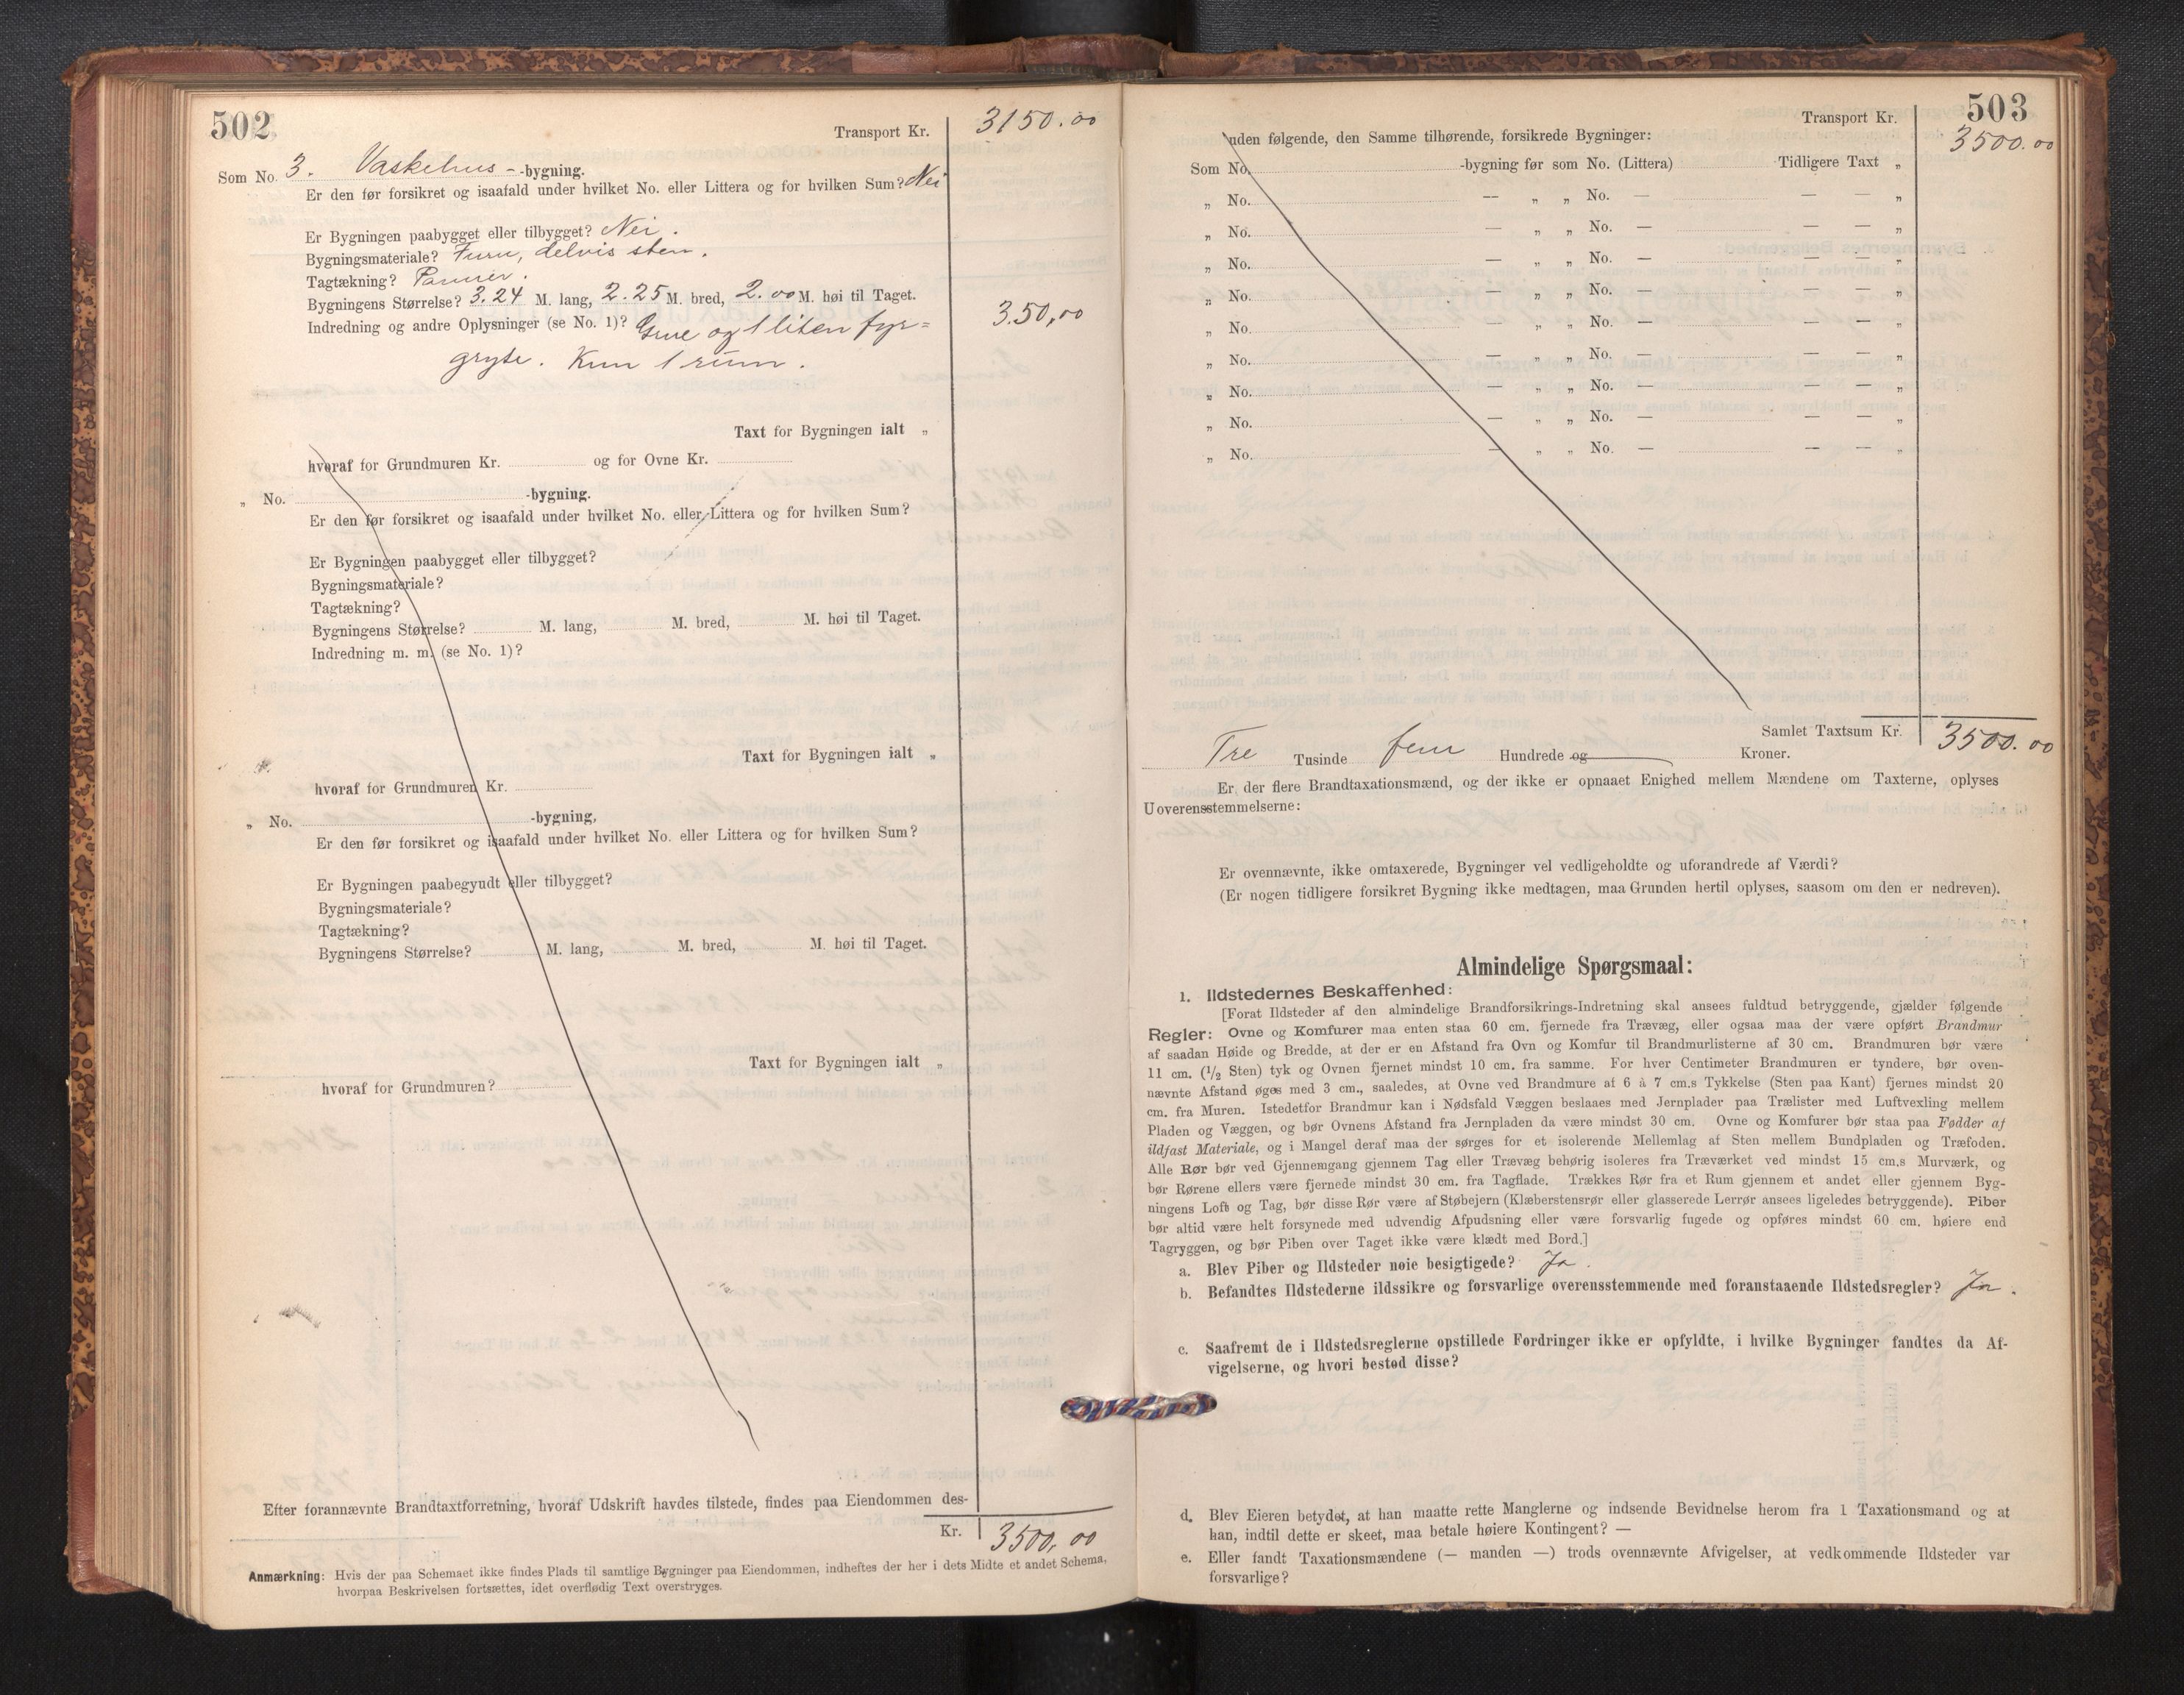 502
Transport Kr. 3150.00
Som No. 3. Vaskehus - -bygning.
Er den før forsikret og isaafald under hvilket No. eller Littera og for hvilken Sum? Nei
Er Bygningen paabygget eller tilbygget? Nei.
Bygningsmateriale? Furu, delvis sten.
Tagtækning? Panner.
Bygningens Størrelse? 3.24 M. lang, 2.25 M. bred, 2.00 M. høi til Taget.
Indredning og andre Oplysninger (se No. 1)? Grue og 1 liten fyr= 350,00
gryte. Kun 1 rum.
Taxt for Bygningen ialt „
hvoraf for Grundmuren Kr. og for Ovne Kr.
„ No. -bygning.
Er den før forsikret og isaafald under hvilket No. eller Littera og for hvilken Sum?
Er Bygningen paabygget eller tilbygget?
Bygningsmateriale?
Tagtækning?
Bygningens Størrelse? M. lang, M. bred, M. høi til Taget.
Indredning m. m. (se No. 1)?
Taxt for Bygningen ialt „
hvoraf for Grundmuren Kr.
„ No. -bygning,
Er den før forsikret og isaafald under hvilket No. eller Littera og for hvilken Sum?
Er Bygningen paabegyndt eller tilbygget?
Bygningsmateriale?
Tagtækning?
Bygningens Størrelse? M. lang, M. bred, M. høi til Taget.
Taxt for Bygningen ialt „
hvoraf for Grundmuren?
Efter forannævnte Brandtaxtforretning, hvoraf Udskrift havdes tilstede, findes paa Eiendommen des-
Kr. 3500,00
Anmærkning: Hvis der paa Schemaet ikke findes Plads til samtlige Bygninger paa Eiendommen, indheftes der her i dets Midte et andet Schema,
hvorpaa Beskrivelsen fortsættes, idet overflødig Text overstryges.
503
Transport Kr. 3500.00
uden følgende, den Samme tilhørende, forsikrede Bygninger:
Som No. -bygning før som No. (Littera) Tidligere Taxt „
„ No. — „ „ No. — — — „
„ No. — „ „ No. — — — „
„ No. — „ „ No. — — — „
„ No. — „ „ No. — — — „
„ No. — „ „ No. — — — „
„ No. — „ „ No. — — — „
„ No. — „ „ No. — — — „
„ No. — „ „ No. — — — „
„ No. — „ „ No. — — — „
Samlet Taxtsum Kr. 3500.00
Tre Tusinde fem Hundrede og Kroner.
Er der flere Brandtaxationsmænd, og der ikke er opnaaet Enighed mellem Mændene om Taxterne, oplyses
Uoverensstemmelserne:
Er ovennævnte, ikke omtaxerede, Bygninger vel vedligeholdte og uforandrede af Værdi?
(Er nogen tidligere forsikret Bygning ikke medtagen, maa Grunden hertil oplyses, saasom om den er nedreven).
Almindelige Spørgsmaal:
1. Ildstedernes Beskaffenhed:
[Forat Ildsteder af den almindelige Brandforsikrings-Indretning skal ansees fuldtud betryggende, gjælder følgende
Regler: Ovne og Komfurer maa enten staa 60 cm. fjernede fra Trævæg, eller ogsaa maa der være opført Brandmur
af saadan Høide og Bredde, at der er en Afstand fra Ovn og Komfur til Brandmurlisterne af 30 cm. Brandmuren bør være
11 cm. (1/2 Sten) tyk og Ovnen fjernet mindst 10 cm. fra samme. For hver Centimeter Brandmuren er tyndere, bør oven-
nævnte Afstand øges med 3 cm., saaledes, at Ovne ved Brandmure af 6 à 7 cm.s Tykkelse (Sten paa Kant) fjernes mindst 20
cm. fra Muren. Istedetfor Brandmur kan i Nødsfald Væggen beslaaes med Jernplader paa Trælister med Luftvexling mellem
Pladen og Væggen, og bør Ovnens Afstand fra Jernpladen da være mindst 30 cm. Ovne og Komfurer bør staa paa Fødder af
ildfast Materiale, og i Mangel deraf maa der sørges for et isolerende Mellemlag af Sten mellem Bundpladen og Træfoden.
Alle Rør bør ved Gjennemgang gjennem Tag eller Trævæg behørig isoleres fra Træværket ved mindst 15 cm.s Murværk, og
bør Rørene ellers være fjernede mindst 30 cm. fra Tagflade. Trækkes Rør fra et Rum gjennem et andet eller gjennem Byg-
ningens Loft og Tag, bør disse Rør være af Støbejern (Klæberstensrør eller glasserede Lerrør ansees ligeledes betryggende). Piber
bør altid være helt forsynede med udvendig Afpudsning eller være forsvarlig fugede og opføres mindst 60 cm. høiere end
Tagryggen, og bør Piben over Taget ikke være klædt med Bord.]
a. Blev Piber og Ildsteder nøie besigtigede? Ja.
b. Befandtes Ildstederne ildssikre og forsvarlige overensstemmende med foranstaaende Ildstedsregler? Ja.
c. Saafremt de i Ildstedsreglerne opstillede Fordringer ikke er opfyldte, i hvilke Bygninger fandtes da Af-
vigelserne, og hvori bestod disse?
d. Blev Eieren betydet, at han maatte rette Manglerne og indsende Bevidnelse herom fra 1 Taxationsmand og at
han, indtil dette er skeet, maa betale høiere Kontingent? —
e. Eller fandt Taxationsmændene (— manden —) trods ovennævnte Afvigelser, at vedkommende Ildsteder var
forsvarlige?